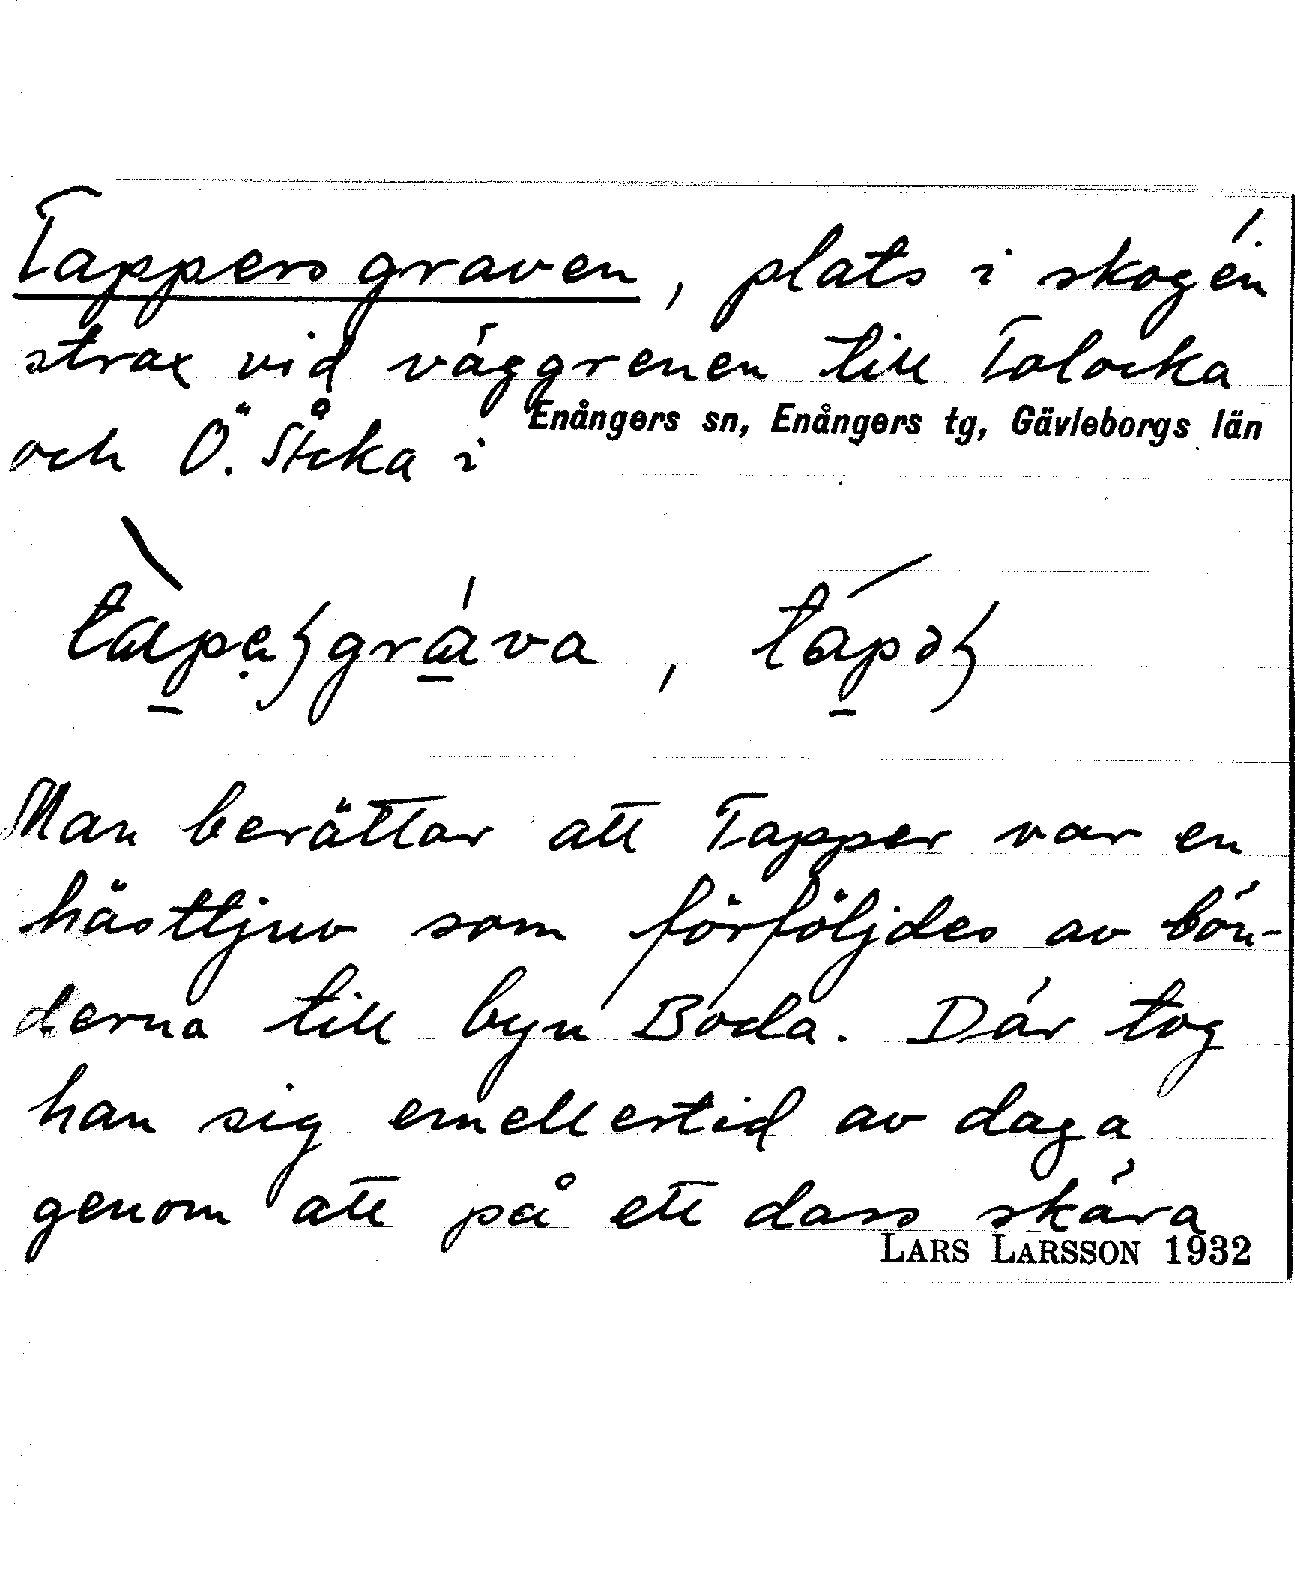 Tappersgraven, plats i skogen
strax vid väggrenen till Tolocka
och Ö. Sticka i Enångers sn, Enångers tg, Gävleborgs län
Man berättar att Tapper var en
hästtjuv som förföljdes av bön-
derna till byn Boda. Där tog
han sig emellertid av daga
genom att på ett dass skära
LARS LARSSON 1932